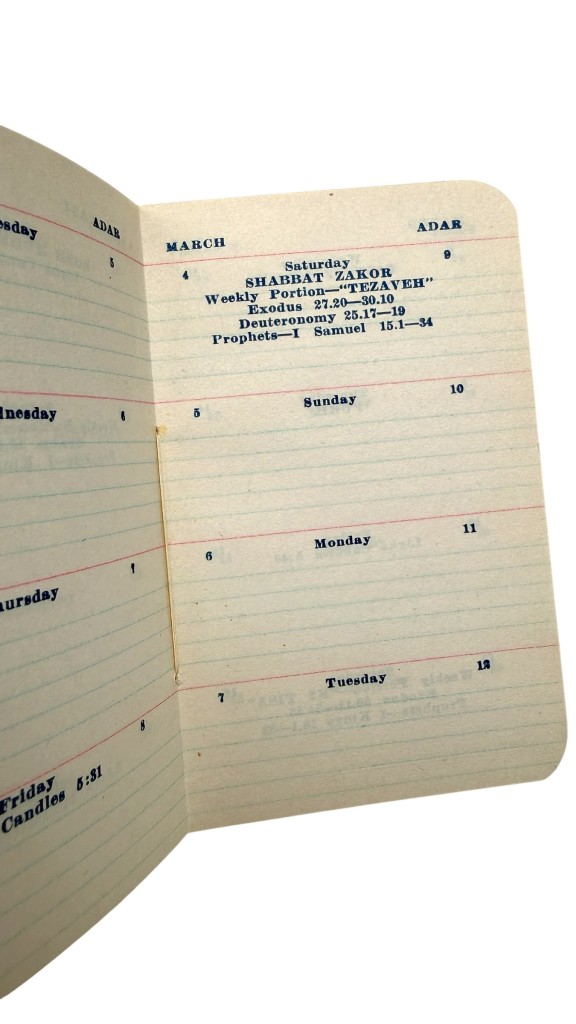 ADAR
5
6
7
8
Friday
Candles 5:31
MARCH ADAR
4 Saturday 9
SHABBAT ZAKOR
Weekly Portion—"TEZAVEH"
Exodus 27.20—30.10
Deuteronomy 25.17—19
Prophets—I Samuel 15.1—34
5 Sunday 10
6 Monday 11
7 Tuesday 12